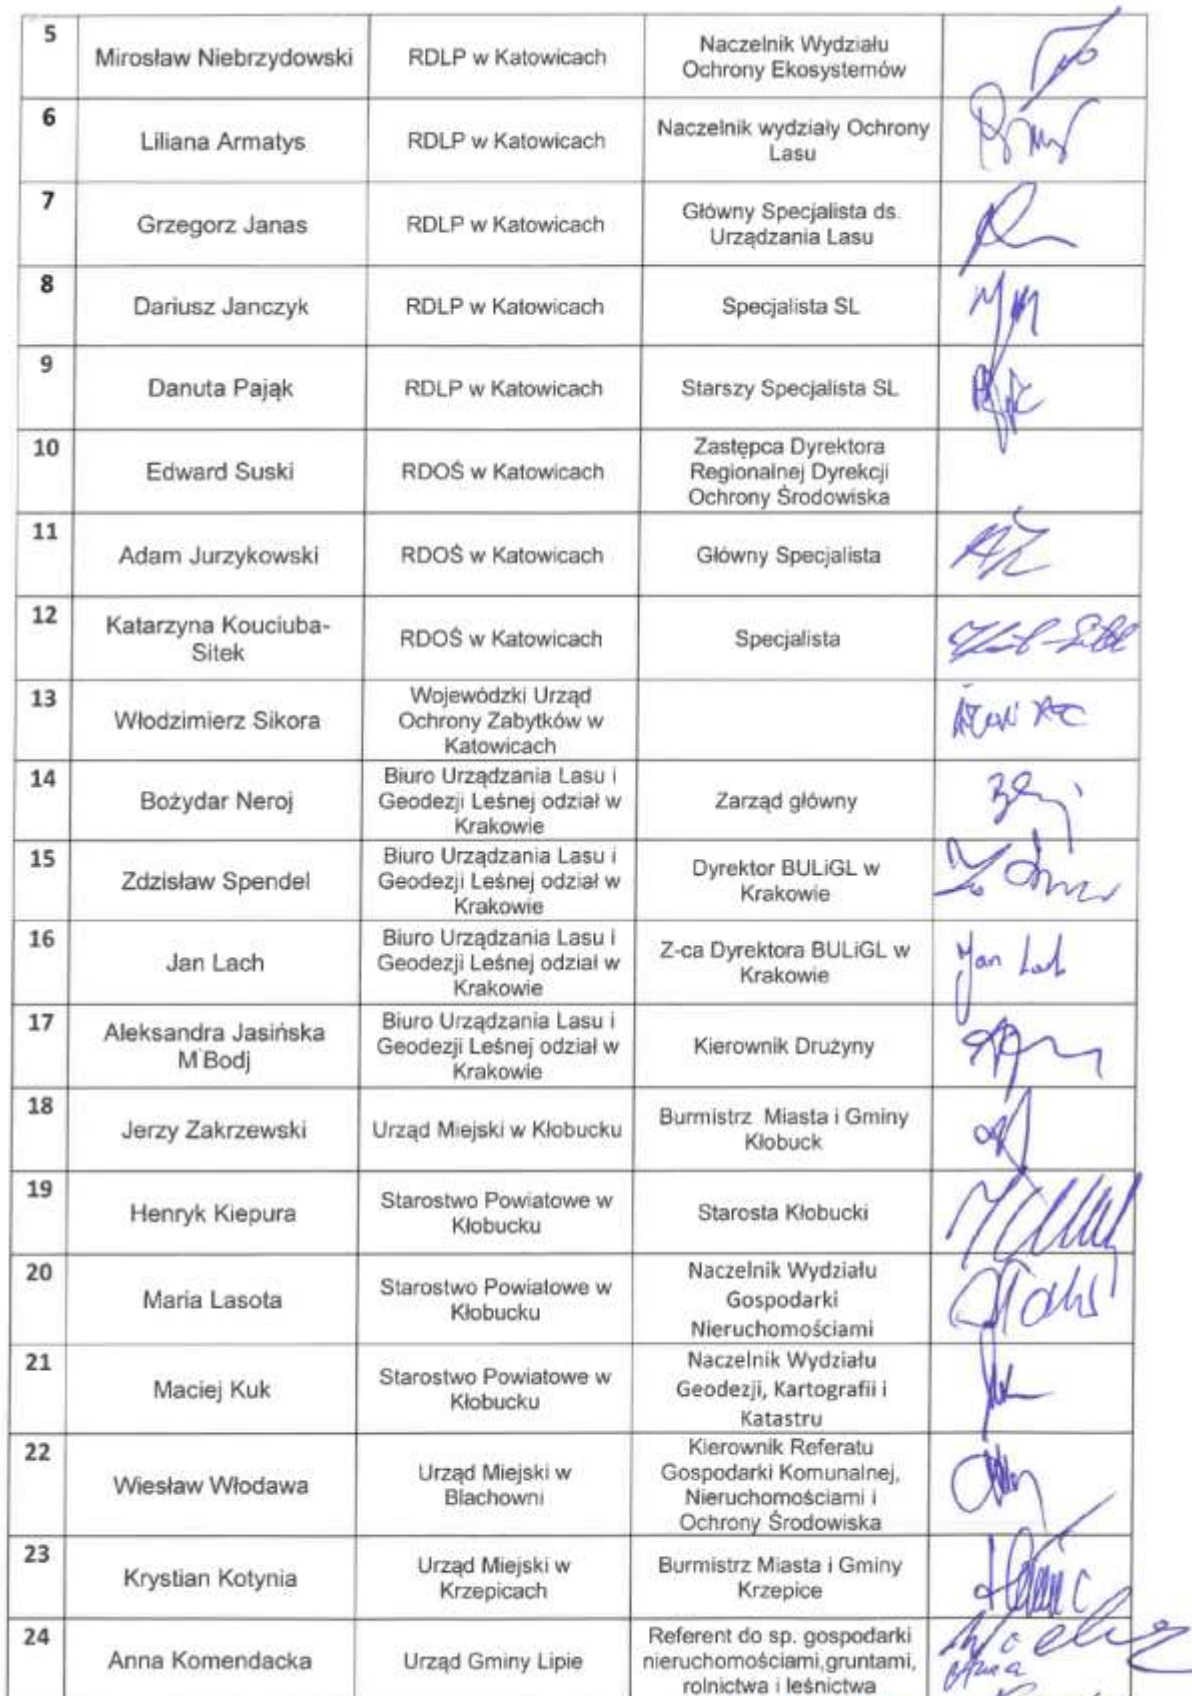 5
Mirosław Niebrzydowski
RDLP w Katowicach
Naczelnik Wydziału
Ochrony Ekosystemów
6
Liliana Armatys
RDLP w Katowicach
Naczelnik wydziały Ochrony
Lasu
7
Grzegorz Janas
RDLP w Katowicach
Główny Specjalista ds.
Urządzania Lasu
8
Dariusz Janczyk
RDLP w Katowicach
Specjalista SL
9
Danuta Pająk
RDLP w Katowicach
Starszy Specjalista SL
10
Edward Suski
RDOŚ w Katowicach
Zastępca Dyrektora
Regionalnej Dyrekcji
Ochrony Środowiska
11
Adam Jurzykowski
RDOŚ w Katowicach
Główny Specjalista
12
Katarzyna Kouciuba-
Sitek
RDOŚ w Katowicach
Specjalista
13
Włodzimierz Sikora
Wojewódzki Urząd
Ochrony Zabytków w
Katowicach
14
Bożydar Neroj
Biuro Urządzania Lasu i
Geodezji Leśnej odział w
Krakowie
Zarząd główny
15
Zdzisław Spendel
Biuro Urządzania Lasu i
Geodezji Leśnej odział w
Krakowie
Dyrektor BULiGL w
Krakowie
16
Jan Lach
Biuro Urządzania Lasu i
Geodezji Leśnej odział w
Krakowie
Z-ca Dyrektora BULiGL w
Krakowie
Jan Lach
17
Aleksandra Jasińska
M'Bodj
Biuro Urządzania Lasu i
Geodezji Leśnej odział w
Krakowie
Kierownik Drużyny
18
Jerzy Zakrzewski
Urząd Miejski w Kłobucku
Burmistrz Miasta i Gminy
Kłobuck
19
Henryk Kiepura
Starostwo Powiatowe w
Kłobucku
Starosta Kłobucki
20
Maria Lasota
Starostwo Powiatowe w
Kłobucku
Naczelnik Wydziału
Gospodarki
Nieruchomościami
21
Maciej Kuk
Starostwo Powiatowe w
Kłobucku
Naczelnik Wydziału
Geodezji, Kartografii i
Katastru
22
Wiesław Włodawa
Urząd Miejski w
Blachowni
Kierownik Referatu
Gospodarki Komunalnej,
Nieruchomościami i
Ochrony Środowiska
23
Krystian Kotynia
Urząd Miejski w
Krzepicach
Burmistrz Miasta i Gminy
Krzepice
24
Anna Komendacka
Urząd Gminy Lipie
Referent do sp. gospodarki
nieruchomościami,gruntami,
rolnictwa i leśnictwa